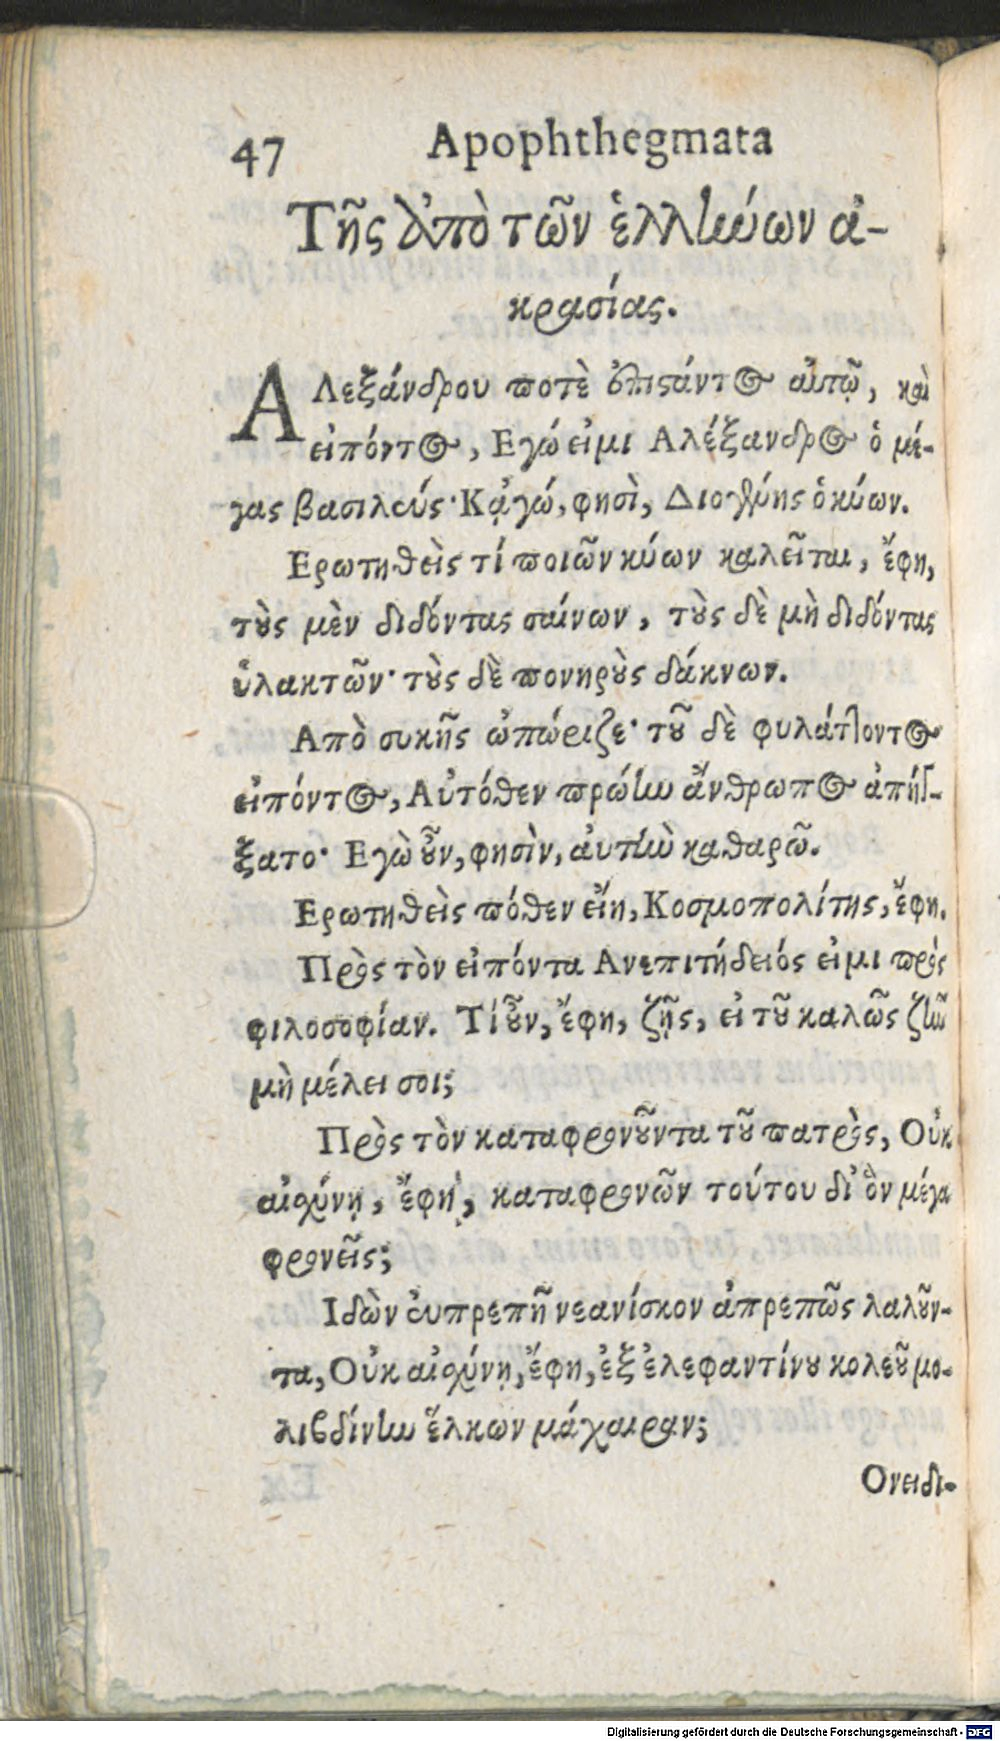 47 Apophthegmata
Τῆς ἀπὸ τῶν ἑλλήνων ἀ-
κρασίας.
ΑΛεξάνδρου ποτὲ ἐπιστάντος αὐτῷ, καὶ
εἰπόντος, Εγώ εἰμι Αλέξανδρος ὁ μέ-
γας βασιλεύς· Κᾀγώ, φησὶ, Διογένης ὁ κύων.
Ερωτηθεὶς τί ποιῶν κύων καλεῖται, ἔφη,
τοὺς μὲν διδόντας σαίνων, τοὺς δὲ μὴ διδόντας
ὑλακτῶν· τοὺς δὲ πονηροὺς δάκνων.
Απὸ συκῆς ὠπώριζε· τοῦ δὲ φυλάττοντος
εἰπόντος, Αὐτόθεν πρώην ἄνθρωπος ἀπήγ-
ξατο· Εγὼ οὖν, φησὶν, αὐτὴν καθαρῶ.
Ερωτηθεὶς πόθεν εἴη, Κοσμοπολίτης, ἔφη.
Πρὸς τὸν εἰπόντα Ανεπιτήδειός εἰμι πρὸς
φιλοσοφίαν. Τί οὖν, ἔφη, ζῇς, εἰ τοῦ καλῶς ζῆν
μὴ μέλει σοι;
Πρὸς τὸν καταφρονοῦντα τοῦ πατρὸς, Οὐκ
αἰσχύνῃ, ἔφη, καταφρονῶν τούτου δι' ὃν μέγα
φρονεῖς;
Ιδὼν εὐπρεπῆ νεανίσκον ἀπρεπῶς λαλοῦν-
τα, Οὐκ αἰσχύνῃ, ἔφη, ἐξ ἐλεφαντίνου κολεοῦ μο-
λιβδίνην ἕλκων μάχαιραν;
Ονειδι-
Digitalisierung gefördert durch die Deutsche Forschungsgemeinschaft - DFG